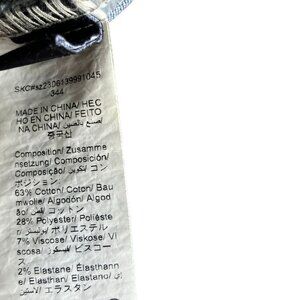 SKC#sz2306139991045
344
MADE IN CHINA/ HEC
HO EN CHINA/ FEITO
NA CHINA/ صنع بالصين/
중국산
Composition/ Zusamme
nsetzung/ Composición/
Composição/ تكوين/ コン
ポジション
63% Cotton/ Coton/ Bau
mwolle/ Algodón/ Algod
ão/ قطن/ コットン
28% Polyester/ Poliéste
r/ بوليستر/ ポリエステル
7% Viscose/ Viskose/ Vi
scosa/ فيسكوز/ ビスコー
ス
2% Elastane/ Elasthann
e/ Elasthan/ Elastano/
エラスタン